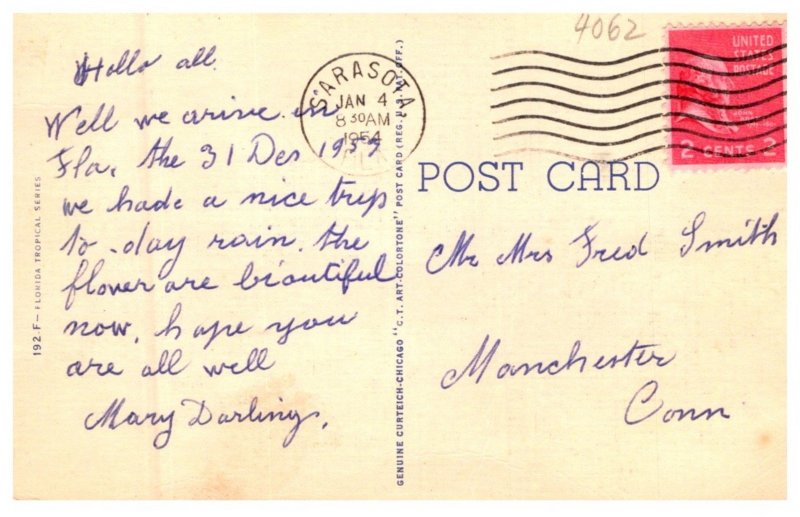 Hollo all
Well we arive in
Fla, the 31 Des 1953
we hade a nice trip
to-day rain. the
flover are beioutiful
now, hope you
are all well
Mary Darling,
192.F— FLORIDA TROPICAL SERIES
GENUINE CURTEICH-CHICAGO "C.T. ART-COLORTONE" POST CARD (REG. U.S. PAT. OFF.)
4062
SARASOTA,
JAN 4
8 30AM
1954
UNITED
STATES
POSTAGE
JOHN
2 CENTS 2
POST CARD
Mr Mrs Fred Smith
Manchester
Conn